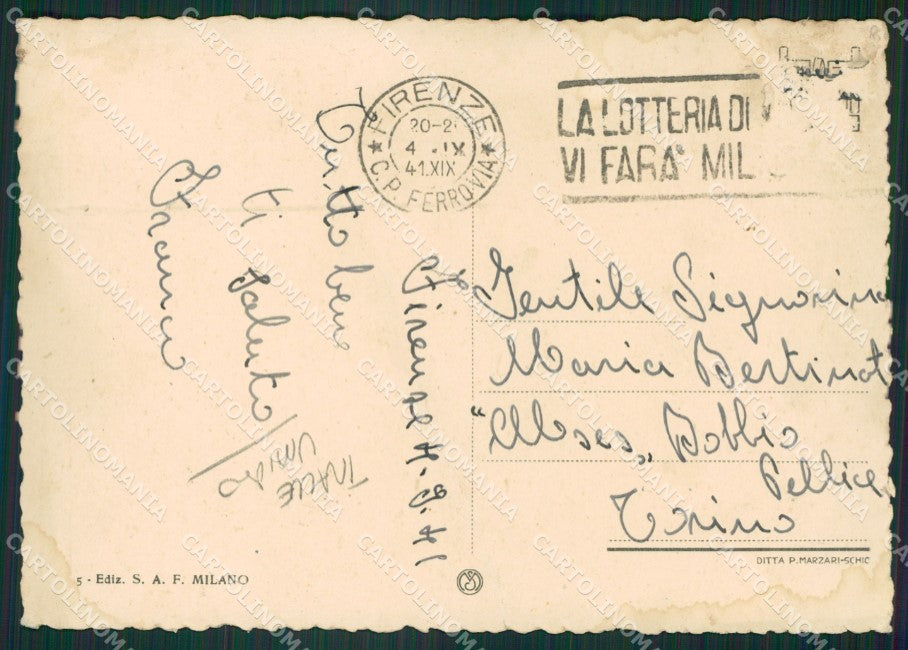 FIRENZE
20-2
4 . IX
41.XIX
C.P. FERROVIA
LA LOTTERIA DI
VI FARA' MIL
Firenze 4.9.41
Tutto bene
ti saluto
Franca
TRACIE
UMIDO
Gentile Signorina
Maria Bertinat
Bobbio
Pellice
Torino
5 - Ediz. S. A. F. MILANO
DITTA P. MARZARI-SCHIO
CARTOLINOMANIA